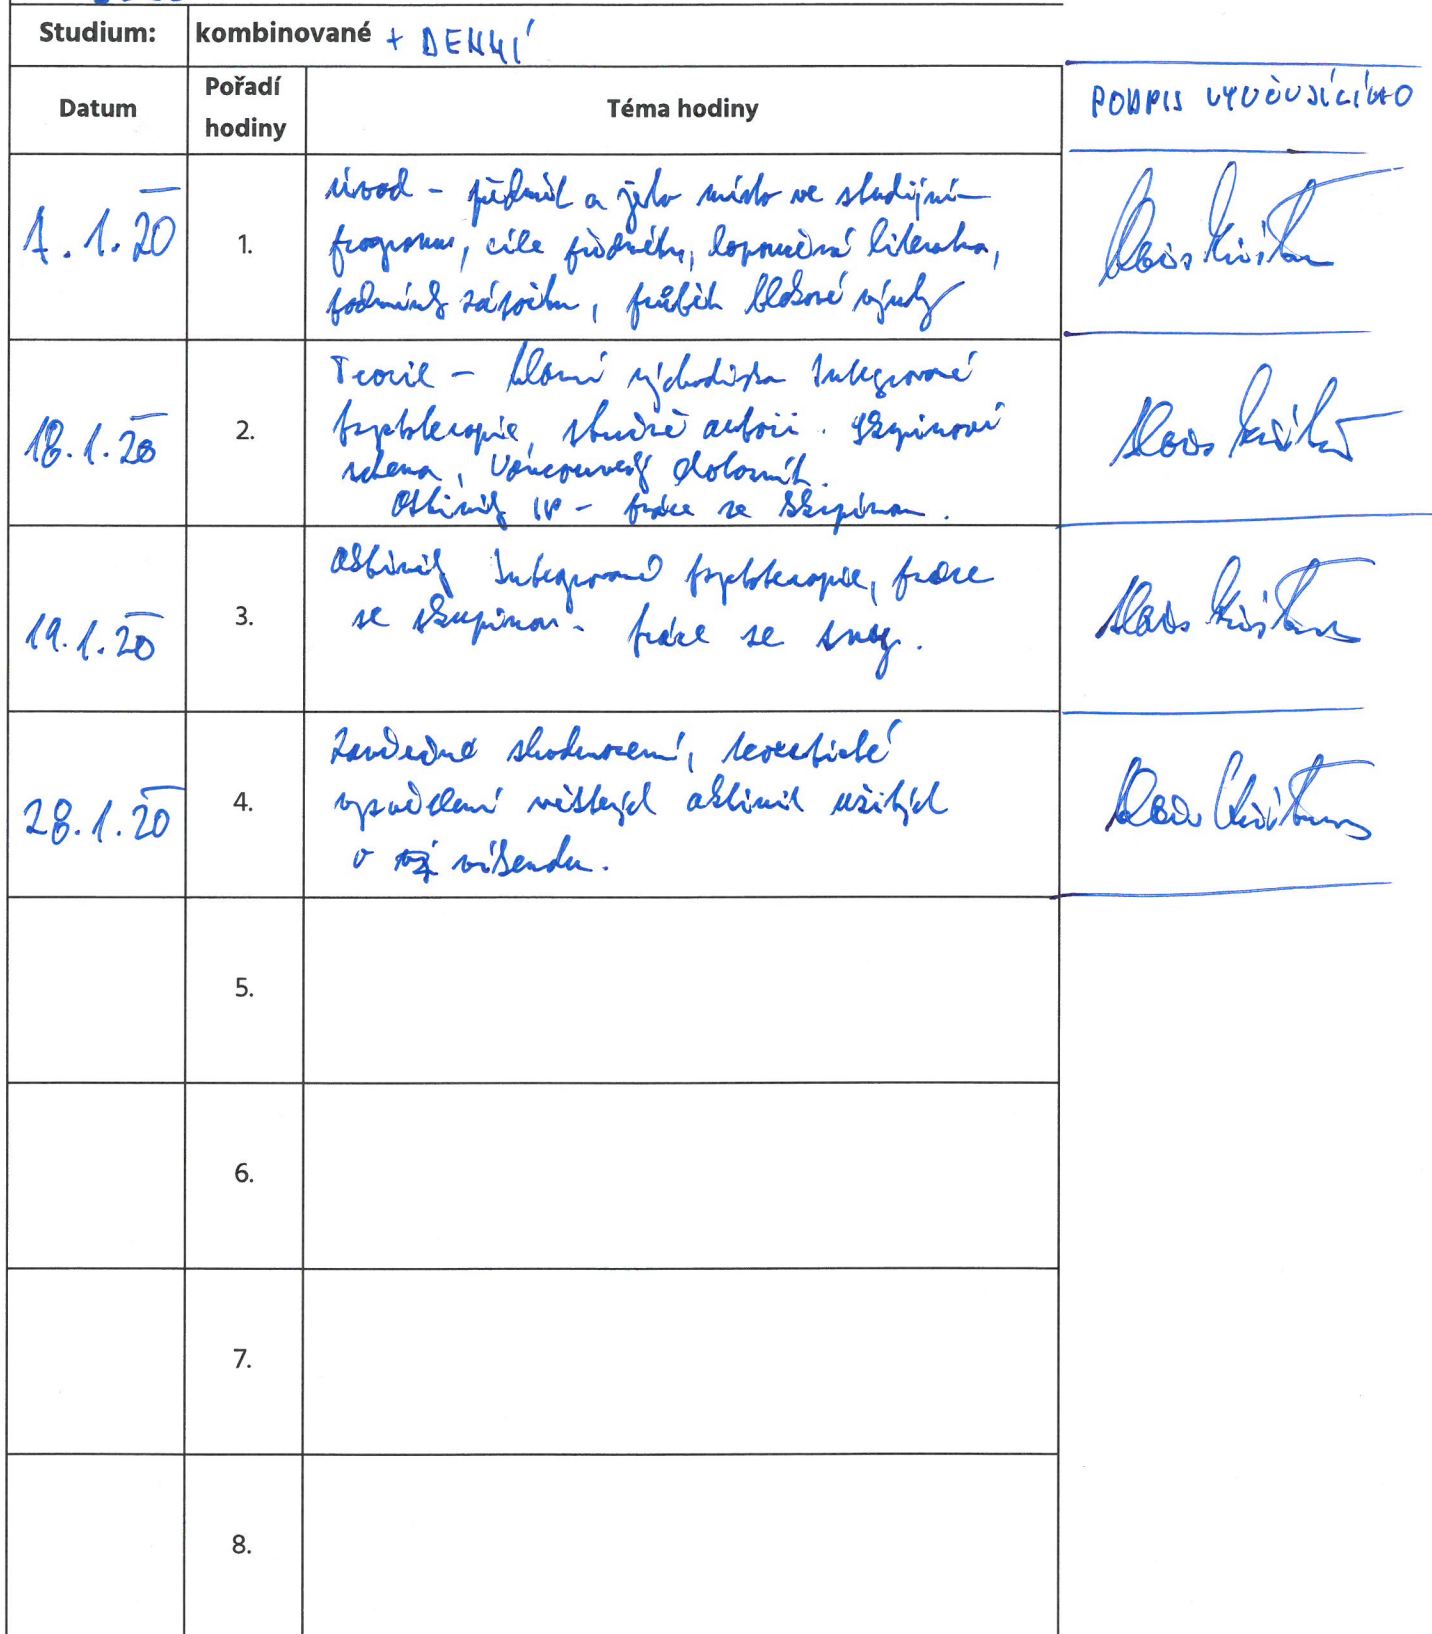 Studium: kombinované + DENNÍ
Datum
Pořadí
hodiny
Téma hodiny
PODPIS VYUČUJÍCÍHO
1.1.20
1.
úvod – předmět a jeho místo ve studijním
programu, cíle předmětu, doporučená literatura,
podmínky zápočtu, průběh blokové výuky
18.1.20
2.
Teorie – hlavní východiska Integrované
psychoterapie, stručně autoři. Skupinové
schema, Vancouverský dotazník.
Aktivity IP – práce se skupinou.
19.1.20
3.
Aktivity Integrované psychoterapie, práce
se skupinou. práce se sny.
28.1.20
4.
Závěrečné zhodnocení, teoretické
vysvětlení některých aktivit užitých
o víkendu.
5.
6.
7.
8.